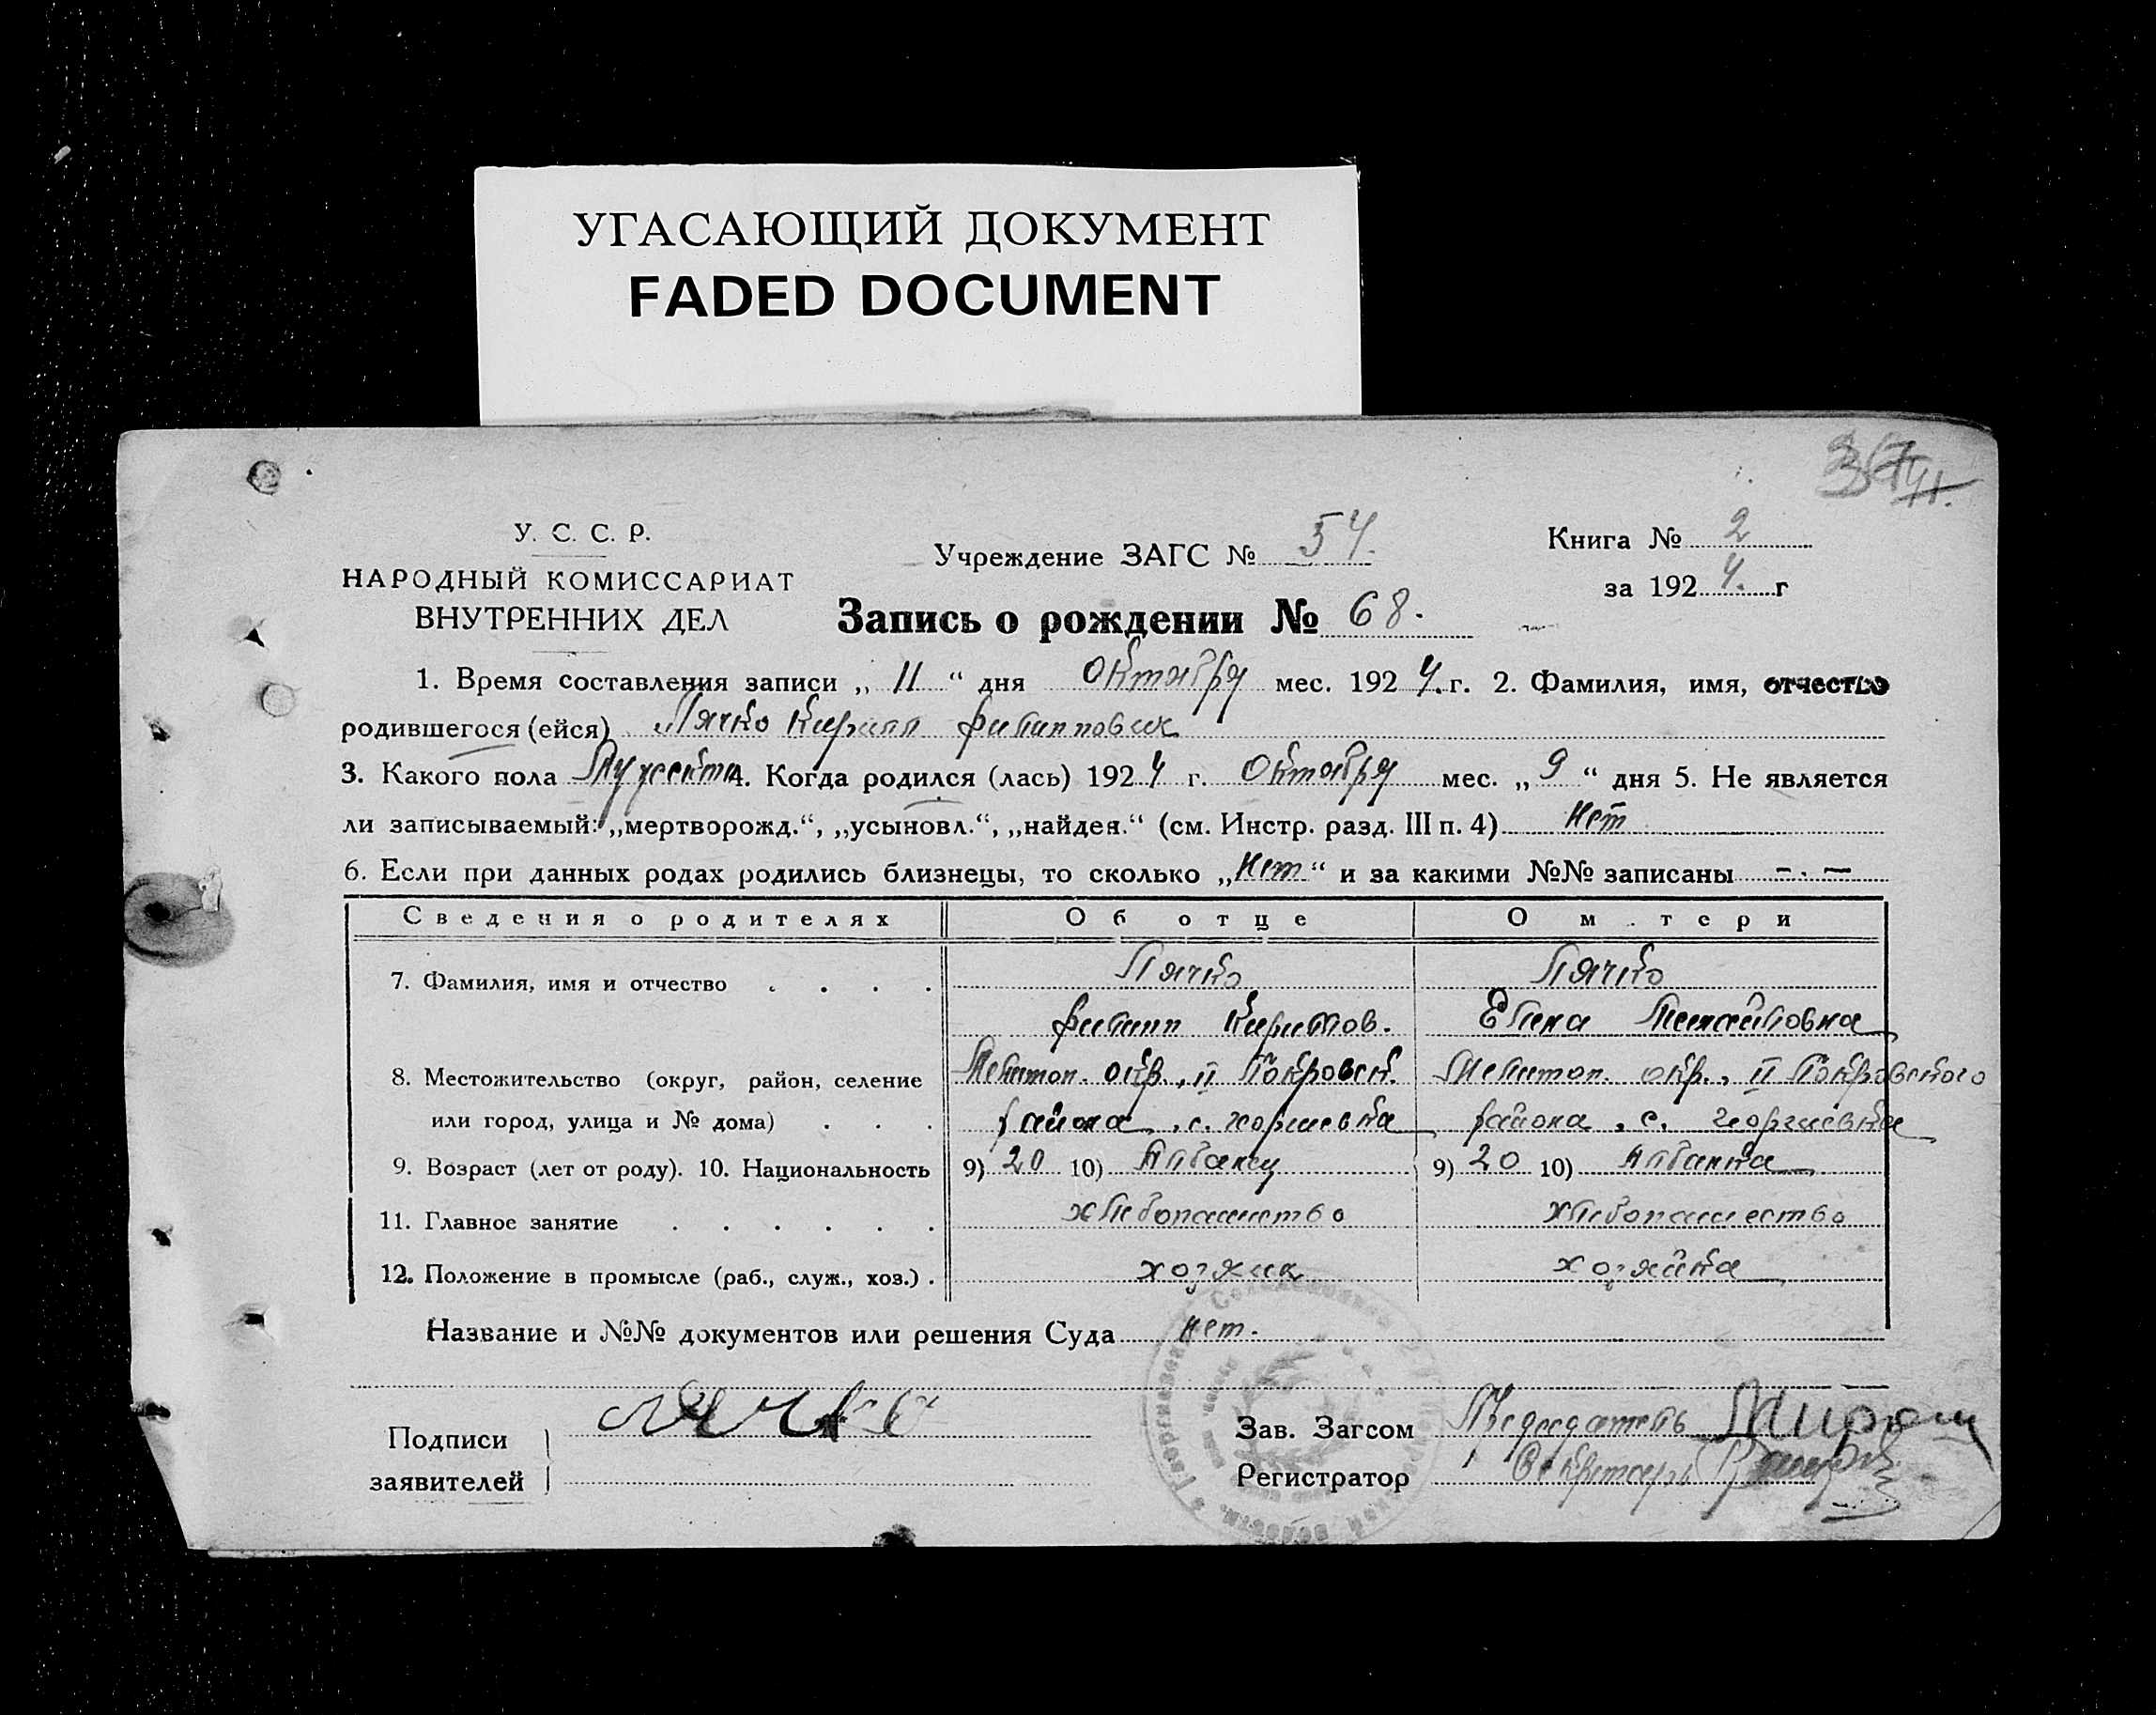 УГАСАЮЩИЙ ДОКУМЕНТ
FADED DOCUMENT
У. С. С. Р.
НАРОДНЫЙ КОМИССАРИАТ
ВНУТРЕННИХ ДЕЛ
Учреждение ЗАГС № 54.
Книга № 2
за 1924. г
Запись о рождении № 68.
1. Время составления записи „ 11 “ дня Октября мес. 1924. г. 2. Фамилия, имя, отчество
родившегося (ейся) Лячко Кирилл Филиппович
3. Какого пола Мужеского 4. Когда родился (лась) 1924 г. Октября мес. „ 9 “ дня 5. Не является
ли записываемый: „мертворожд.“, „усыновл.“, „найден.“ (см. Инстр. разд. III п. 4) нет
6. Если при данных родах родились близнецы, то сколько „нет“ и за какими №№ записаны -.-
Сведения о родителях Об отце О м.тери
7. Фамилия, имя и отчество . . . . Лячко Лячко
Филипп Кирилов. Елена Михайловна
8. Местожительство (округ, район, селение Мелитоп. окр., II Покровск. Мелитоп. окр., II Покровского
или город, улица и № дома) . . . района, с. Георгиевка района, с. Георгиевка
9. Возраст (лет от роду). 10. Национальность 9) 20 10) Албанец 9) 20 10) Албанка
11. Главное занятие . . . . . . хлебопашество хлебопашество
12. Положение в промысле (раб., служ., хоз.) . хозяин хозяйка
Название и №№ документов или решения Суда нет.
Подписи Лячко
заявителей
Зав. Загсом Председатель
Регистратор Секретарь